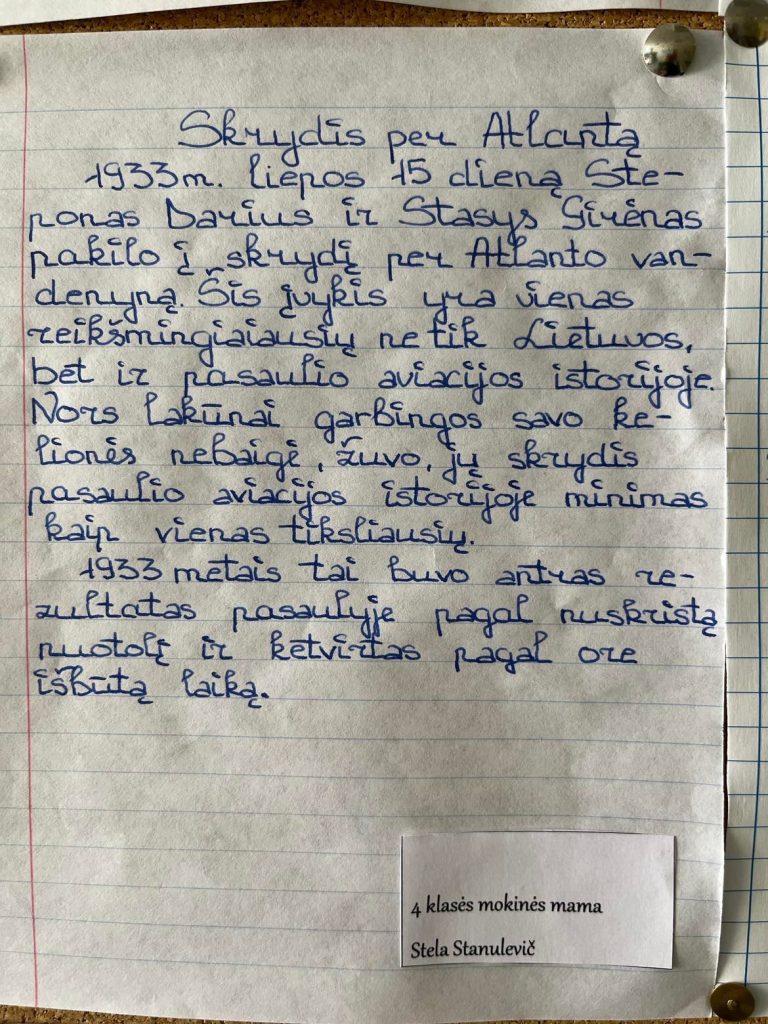 Skrydis per Atlantą
1933 m. liepos 15 dieną Ste-
ponas Darius ir Stasys Girėnas
pakilo į skrydį per Atlanto van-
denyną. Šis įvykis yra vienas
reikšmingiaiausių ne tik Lietuvos,
bet ir pasaulio aviacijos istorijoje.
Nors lakūnai garbingos savo ke-
lionės nebaigė, žuvo, jų skrydis
pasaulio aviacijos istorijoje minimas
kaip vienas tiksliausių.
1933 metais tai buvo antras re-
zultatas pasaulyje pagal nuskristą
nuotolį ir ketvirtas pagal ore
išbūtą laiką.
4 klasės mokinės mama
Stela Stanulevič